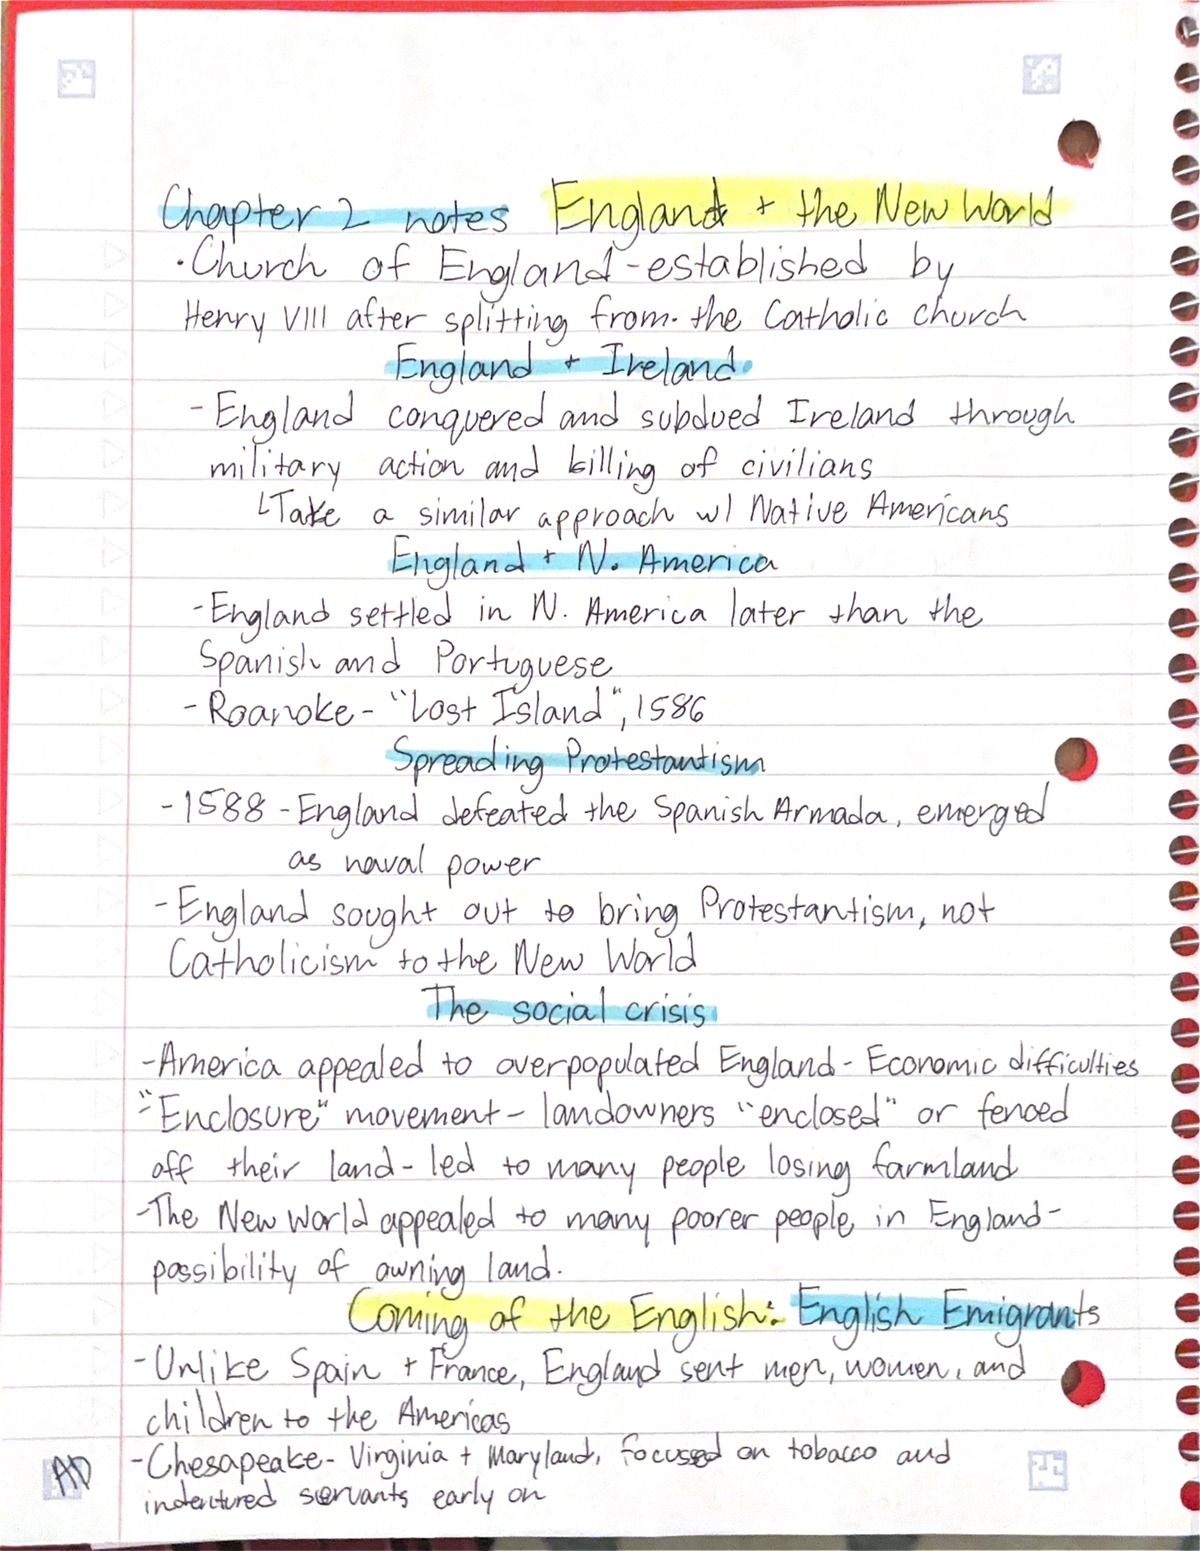 Chapter 2 notes England + the New World
• Church of England - established by
Henry VIII after splitting from the Catholic church
England + Ireland
- England conquered and subdued Ireland through
military action and killing of civilians
↳ Take a similar approach w/ Native Americans
England + N. America
- England settled in N. America later than the
Spanish and Portuguese
- Roanoke - "Lost Island", 1586
Spreading Protestantism
- 1588 - England defeated the Spanish Armada, emerged
as naval power
- England sought out to bring Protestantism, not
Catholicism to the New World
The social crisis
- America appealed to overpopulated England - Economic difficulties
- "Enclosure" movement - landowners "enclosed" or fenced
off their land - led to many people losing farmland
- The New World appealed to many poorer people in England -
possibility of owning land.
Coming of the English: English Emigrants
- Unlike Spain + France, England sent men, women, and
children to the Americas
- Chesapeake - Virginia + Maryland, focused on tobacco and
indentured servants early on
AD